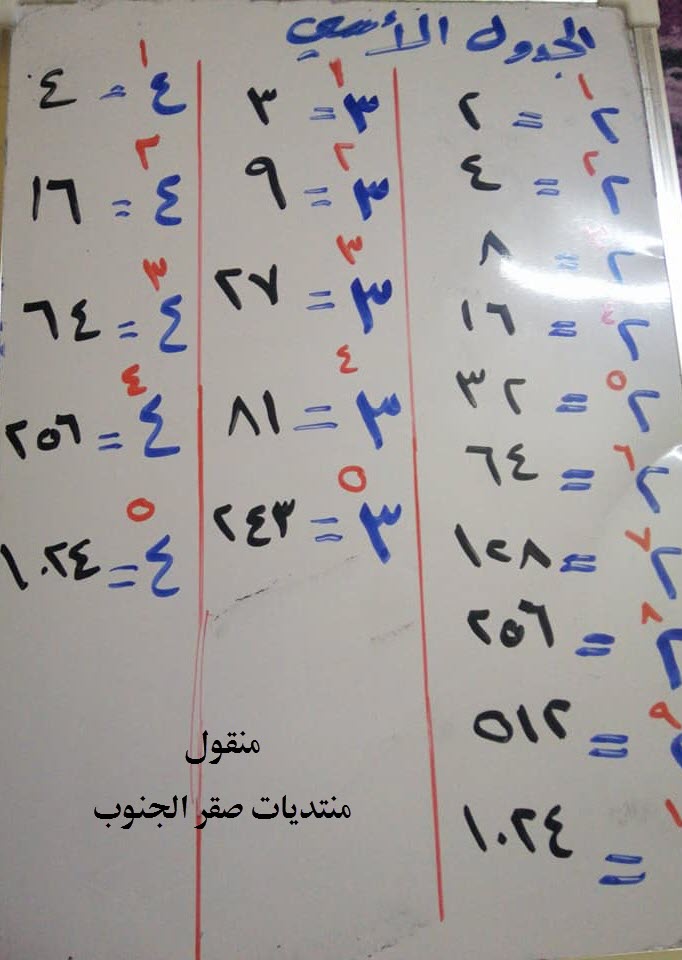 الجدول الأسي
٢^١ = ٢
٢^٢ = ٤
٢^٣ = ٨
٢^٤ = ١٦
٢^٥ = ٣٢
٢^٦ = ٦٤
٢^٧ = ١٢٨
٢^٨ = ٢٥٦
٢^٩ = ٥١٢
= ١٠٢٤
٣^١ = ٣
٣^٢ = ٩
٣^٣ = ٢٧
٣^٤ = ٨١
٣^٥ = ٢٤٣
٤^١ = ٤
٤^٢ = ١٦
٤^٣ = ٦٤
٤^٤ = ٢٥٦
٤^٥ = ١٠٢٤
منقول
منتديات صقر الجنوب